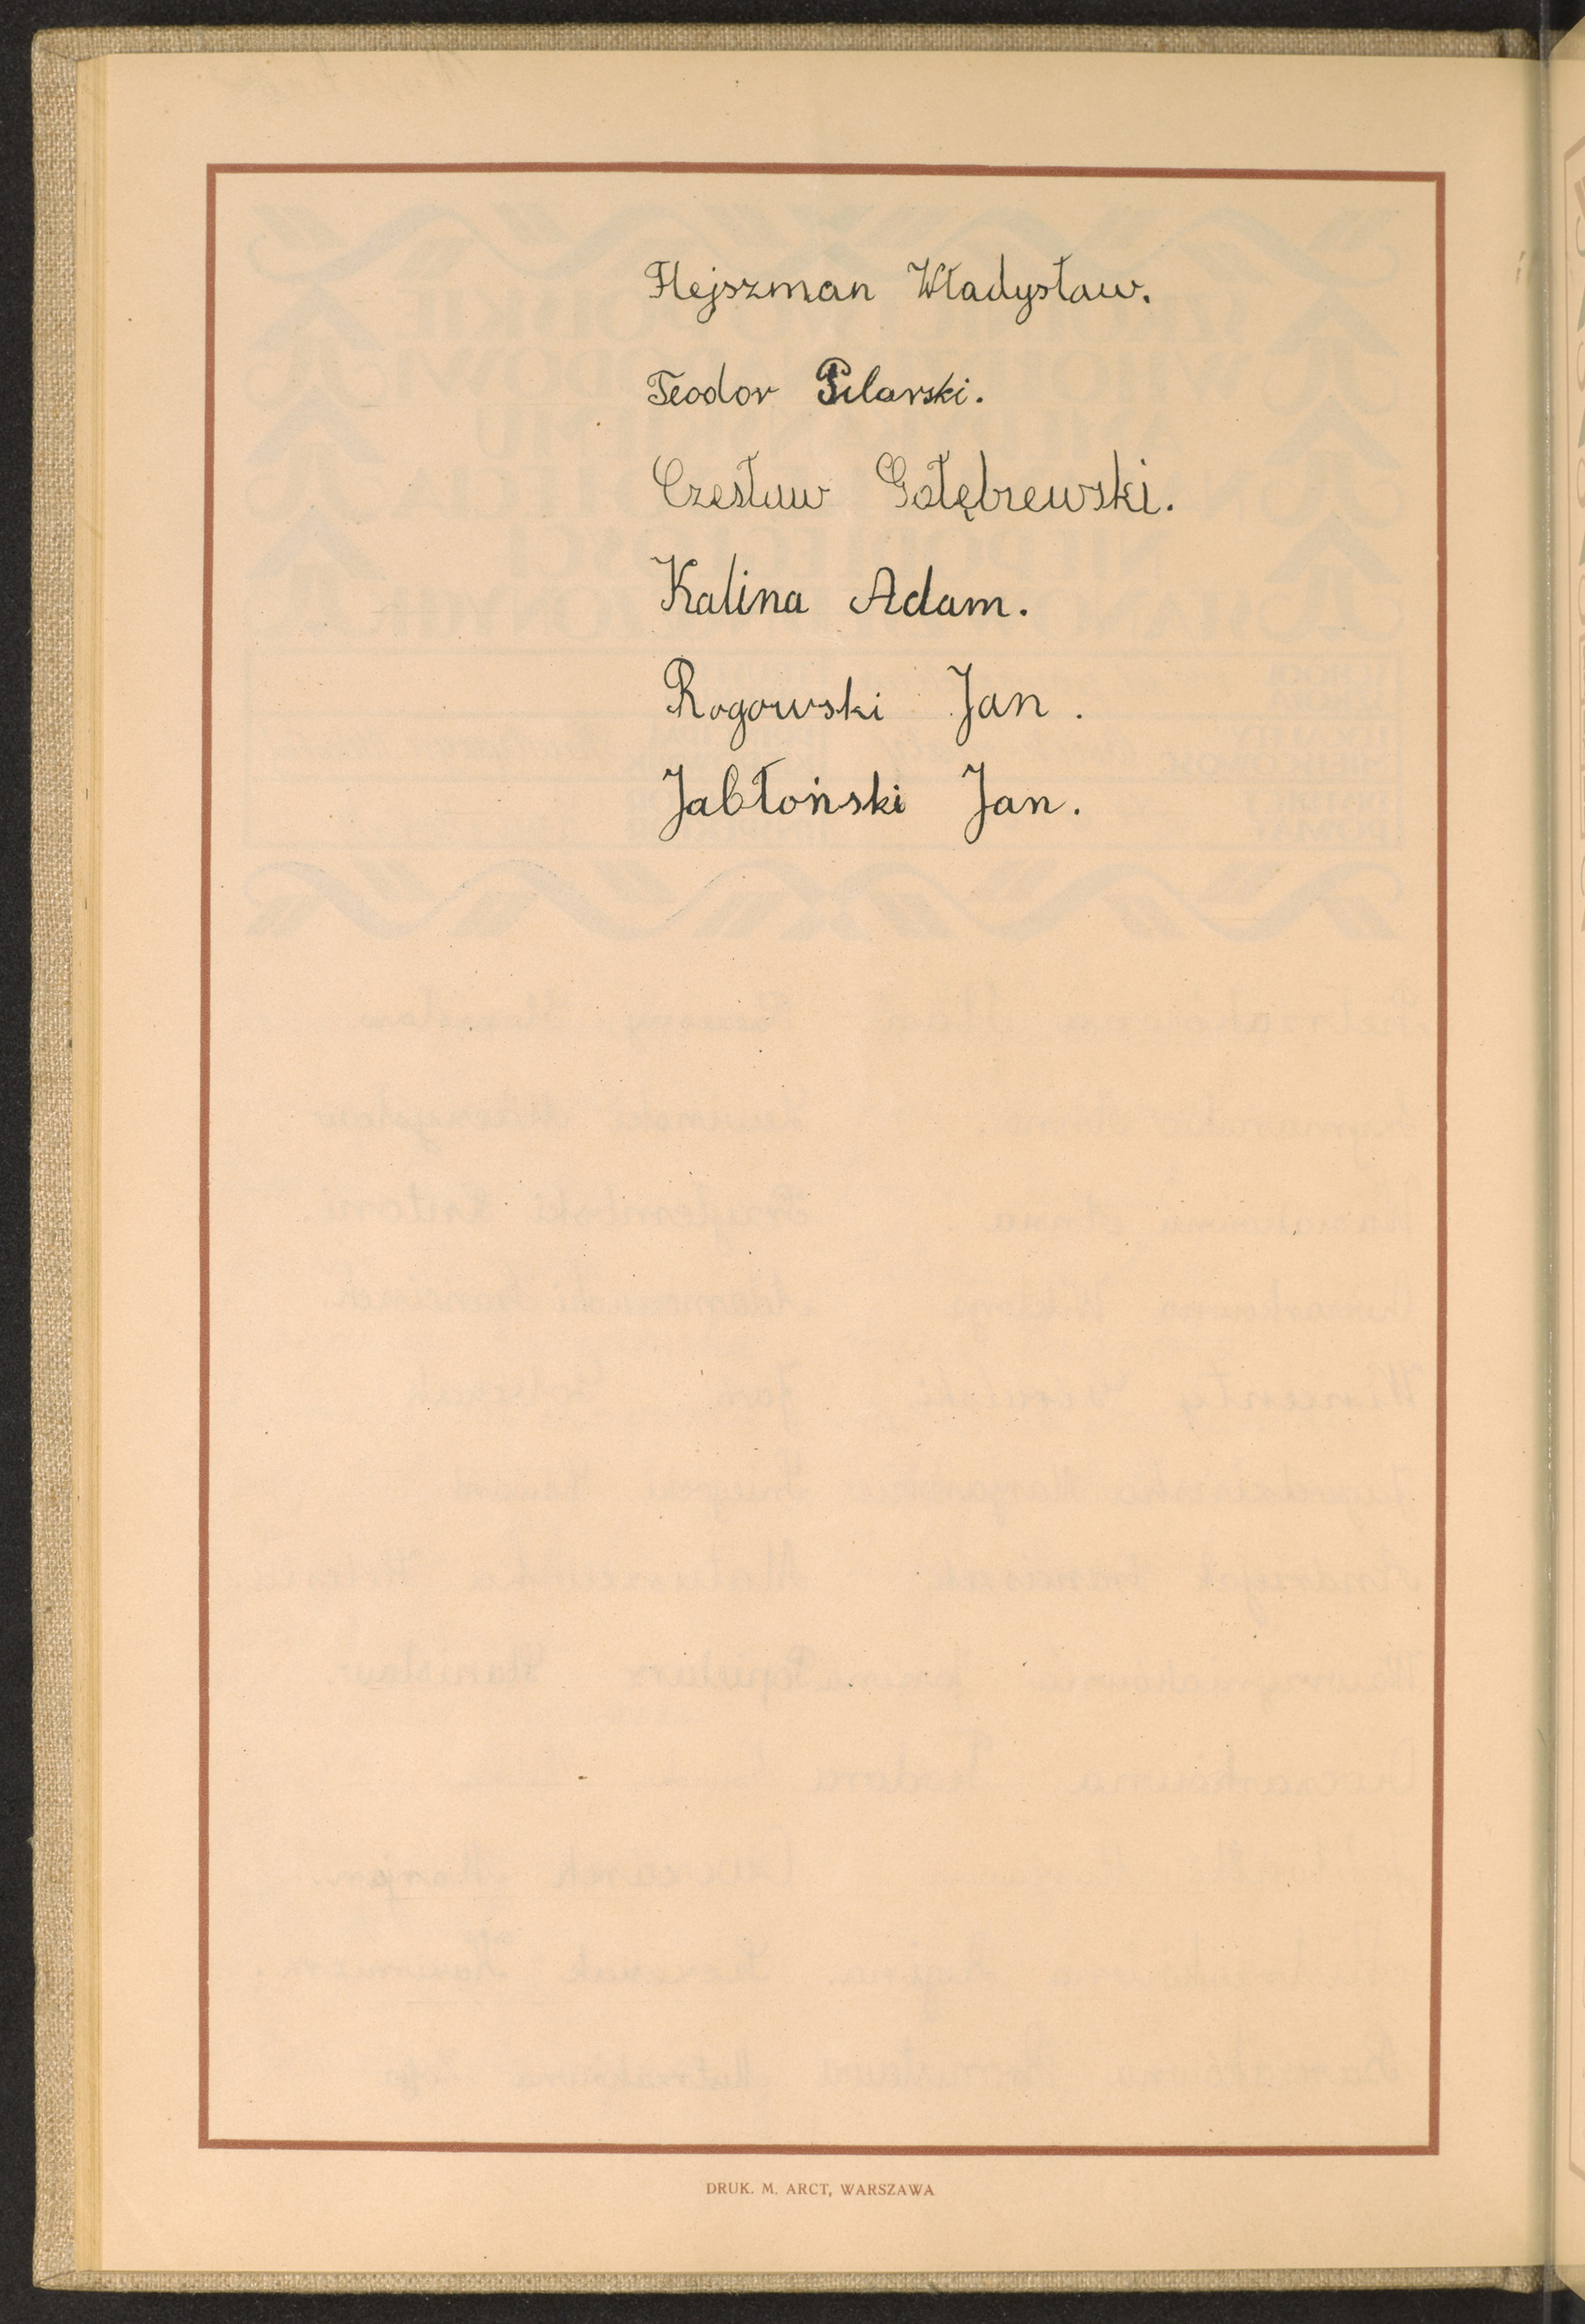 Hejszman Władysław.
Teodor Pilarski.
Czesław Gołębiewski.
Kalina Adam.
Rogowski Jan.
Jabłoński Jan.
DRUK. M. ARCT, WARSZAWA